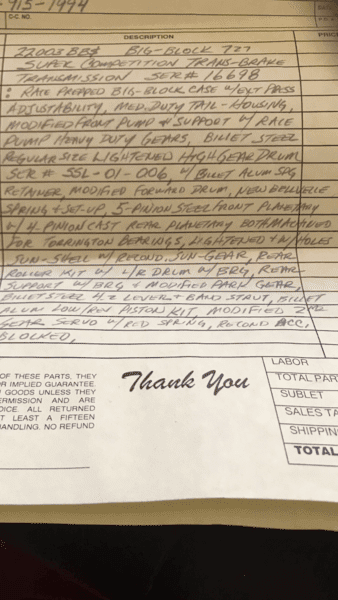 -915-1994
C.C. NO.
DESCRIPTION
PRICE
22003BBS BIG-BLOCK 727
SUPER COMPETITION TRANS-BRAKE
TRANSMISSION SER# 16698
: RACE PREPPED BIG-BLOCK CASE W/EXT PRESS
ADJUSTABILITY, MED. DUTY TAIL-HOUSING,
MODIFIED FRONT PUMP & SUPPORT W/ RACE
PUMP HEAVY DUTY GEARS, BILLET STEEL
REGULAR SIZE LIGHTENED HIGH GEAR DRUM
SER # SSL-01-006, W/ BILLET ALUM SPG
RETAINER, MODIFIED FORWARD DRUM, NEW BELLVELLE
SPRING & SET-UP, 5-PINION STEEL FRONT PLANETARY
W/ 4-PINION CAST REAR PLANETARY BOTH MACHINED
FOR TORRINGTON BEARINGS, LIGHTENED & W/HOLES
SUN-SHELL W/ RECOND. SUN-GEAR, REAR
ROLLER KIT W/ L/R DRUM W/ BRG, REAR
SUPPORT W/ BRG & MODIFIED PARK GEAR,
BILLET STEEL 4.2 LEVER & BAND STRUT, BILLET
ALUM LOW/REV PISTON KIT, MODIFIED 2ND
GEAR SERVO W/ RED SPRING, RECOND ACC.
BLOCKED,
LABOR
OF THESE PARTS, THEY
OR IMPLIED GUARANTEE.
GOODS UNLESS THEY
ERMISSION AND ARE
OICE. ALL RETURNED
T LEAST A FIFTEEN
HANDLING. NO REFUND
Thank You
TOTAL PAR
SUBLET
SALES TA
SHIPPIN
TOTAL